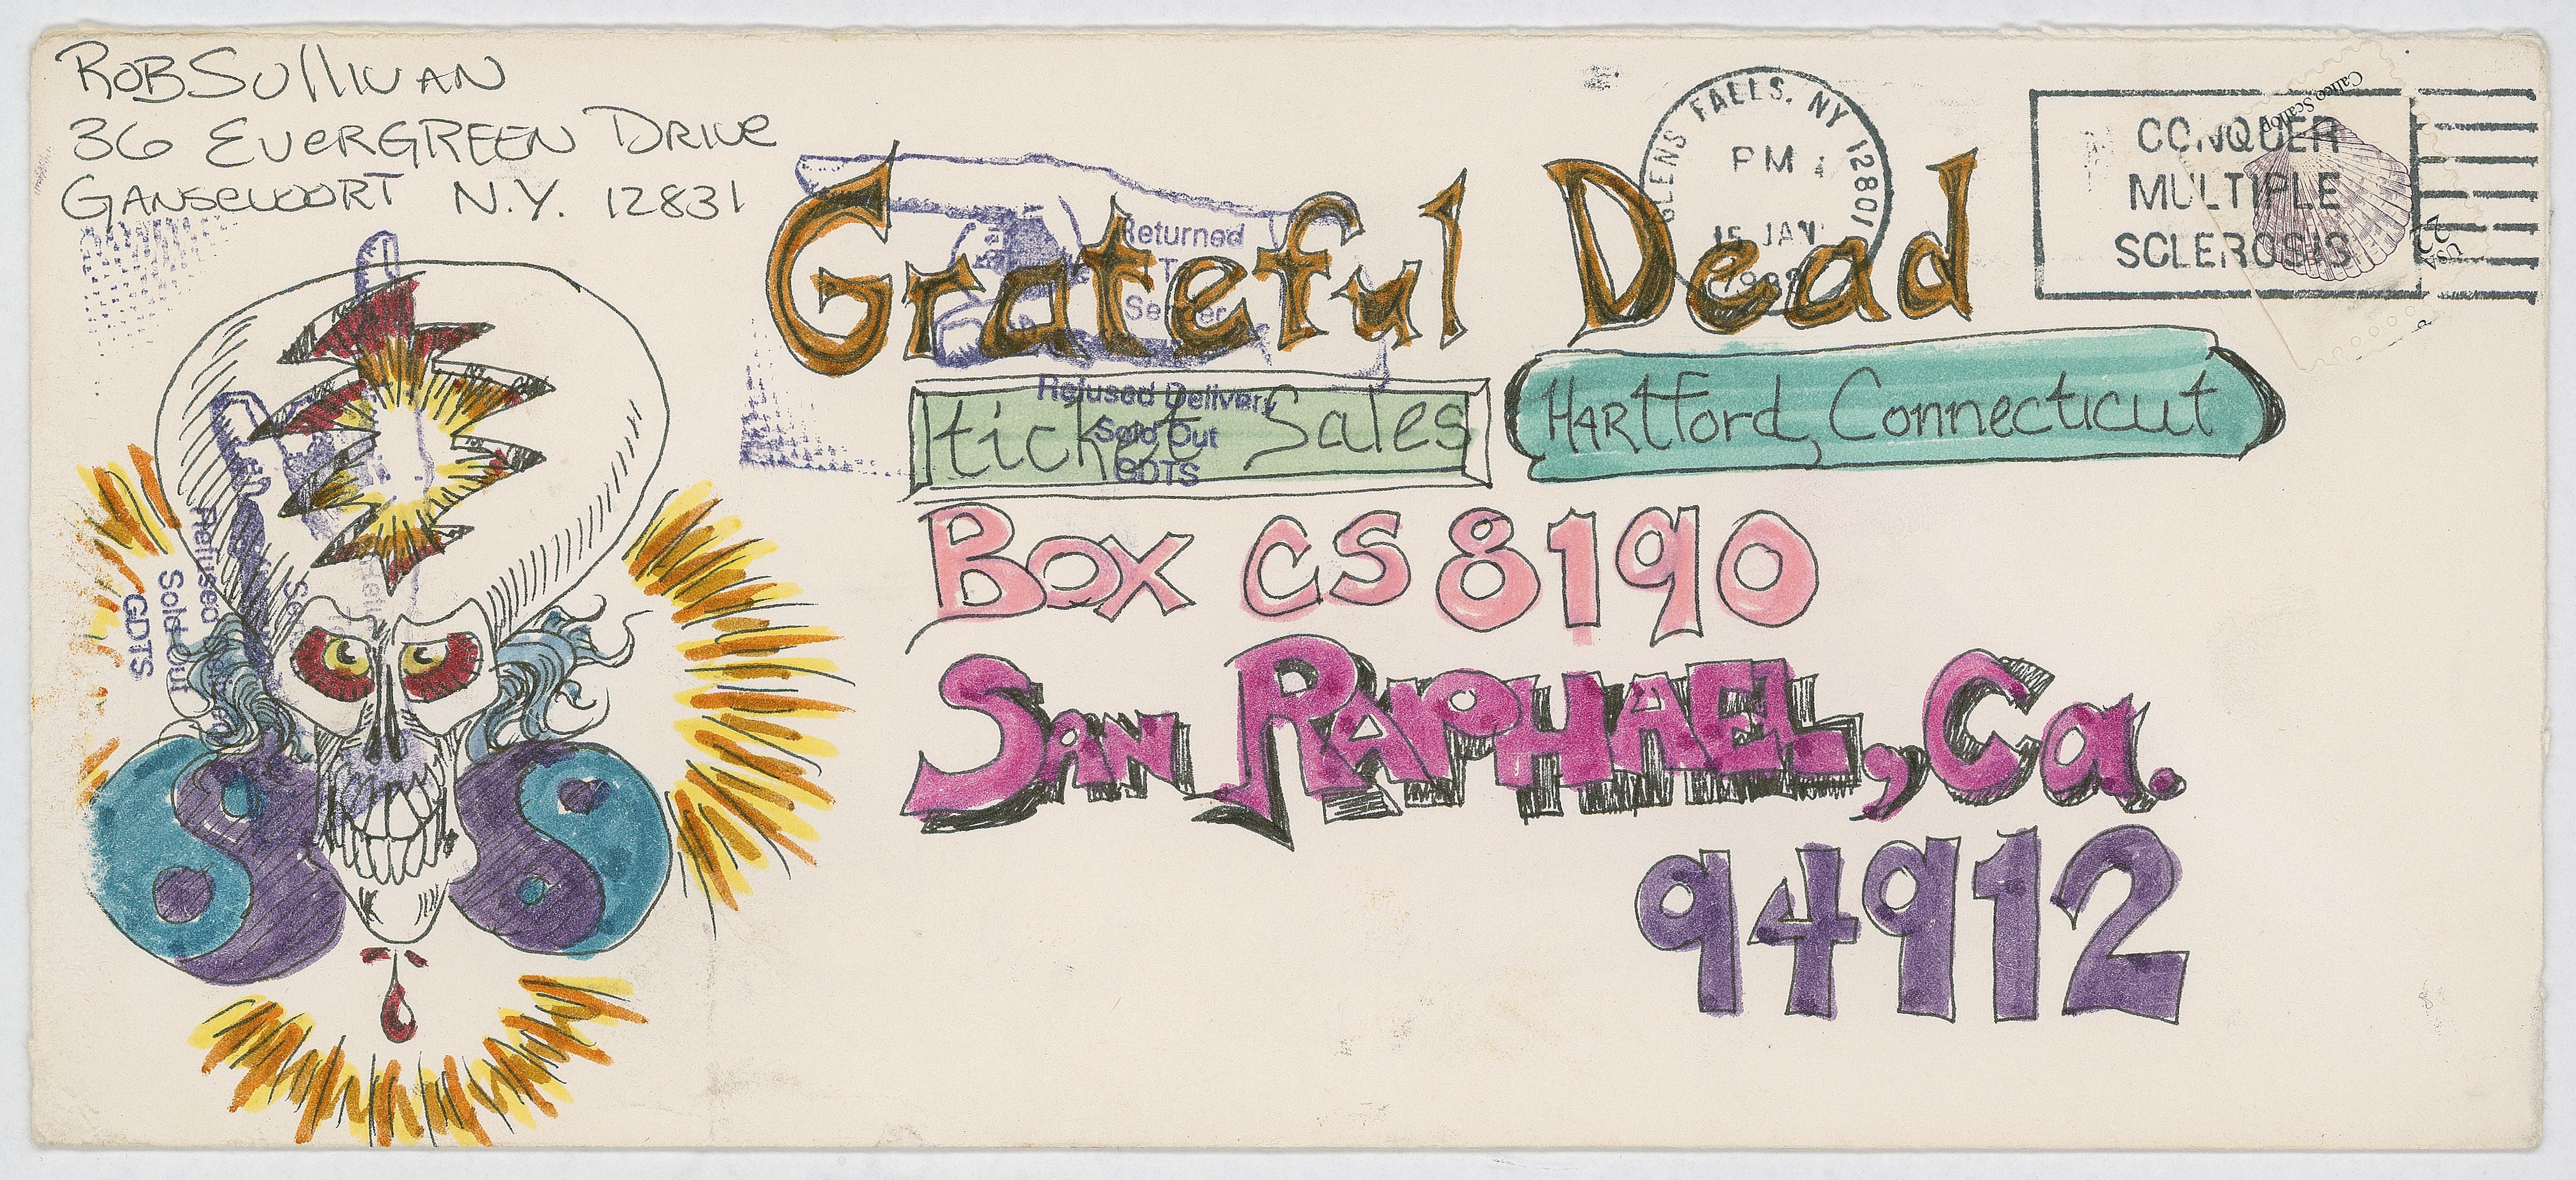 ROB SULLIVAN
36 EVERGREEN DRIVE
GANSEVOORT N.Y. 12831
GLENS FALLS, NY 12801
PM
15 JAN
CONQUER
MULTIPLE
SCLEROSIS
Calico Scallop
USA
22
Grateful Dead
Returned
To
Sender
Refused Delivery
Sold Out
GDTS
ticket Sales
HARtford, Connecticut
Box CS 8190
SAN RAPHAEL, Ca.
94912
Refused
Sold Out
GDTS